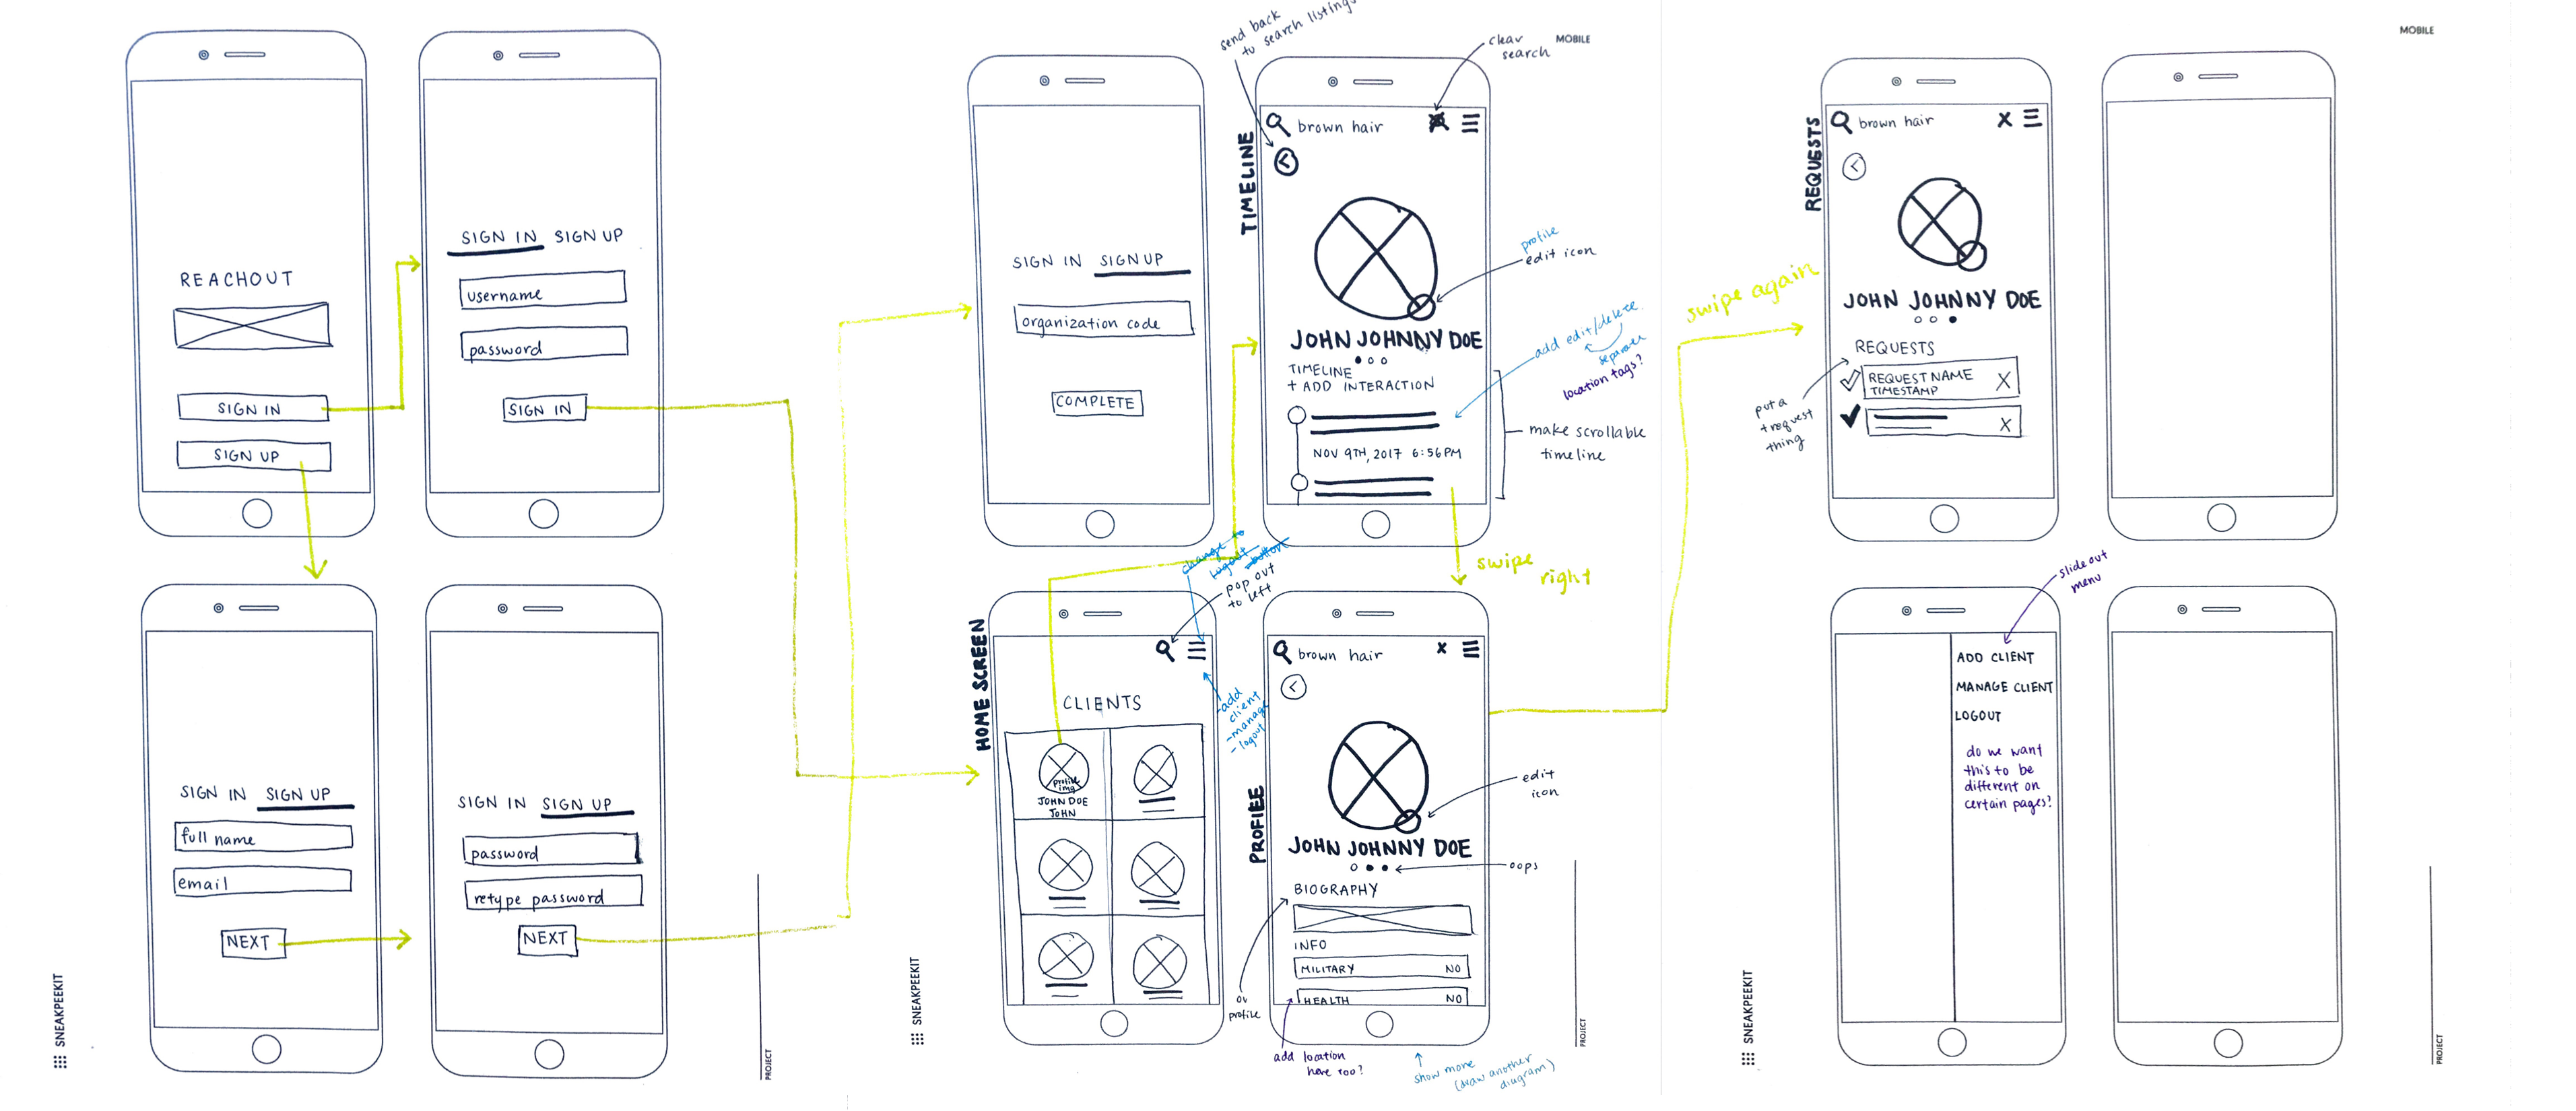 REACHOUT
SIGN IN
SIGN UP
SIGN IN SIGN UP
username
password
SIGN IN
SIGN IN SIGN UP
full name
email
NEXT
SIGN IN SIGN UP
password
retype password
NEXT
SNEAKPEEKIT
PROJECT
SIGN IN SIGN UP
organization code
COMPLETE
send back
to search listings
clear
search
MOBILE
TIMELINE
brown hair
profile
edit icon
JOHN JOHNNY DOE
TIMELINE
+ ADD INTERACTION
add edit/delete
separate
location tags?
NOV 9TH, 2017 6:56PM
make scrollable
timeline
swipe
right
HOME SCREEN
change to
logout button
pop out
to left
CLIENTS
-add
client
-manage
-logout
profile
img
JOHN DOE
JOHN
PROFILE
brown hair
X
edit
icon
JOHN JOHNNY DOE
oops
BIOGRAPHY
INFO
MILITARY NO
HEALTH NO
or
profile
add location
here too?
show more
(draw another
diagram)
SNEAKPEEKIT
PROJECT
swipe again
MOBILE
REQUESTS
brown hair X
JOHN JOHNNY DOE
REQUESTS
REQUEST NAME X
TIMESTAMP
X
put a
+ request
thing
slide out
menu
ADD CLIENT
MANAGE CLIENT
LOGOUT
do we want
this to be
different on
certain pages?
SNEAKPEEKIT
PROJECT